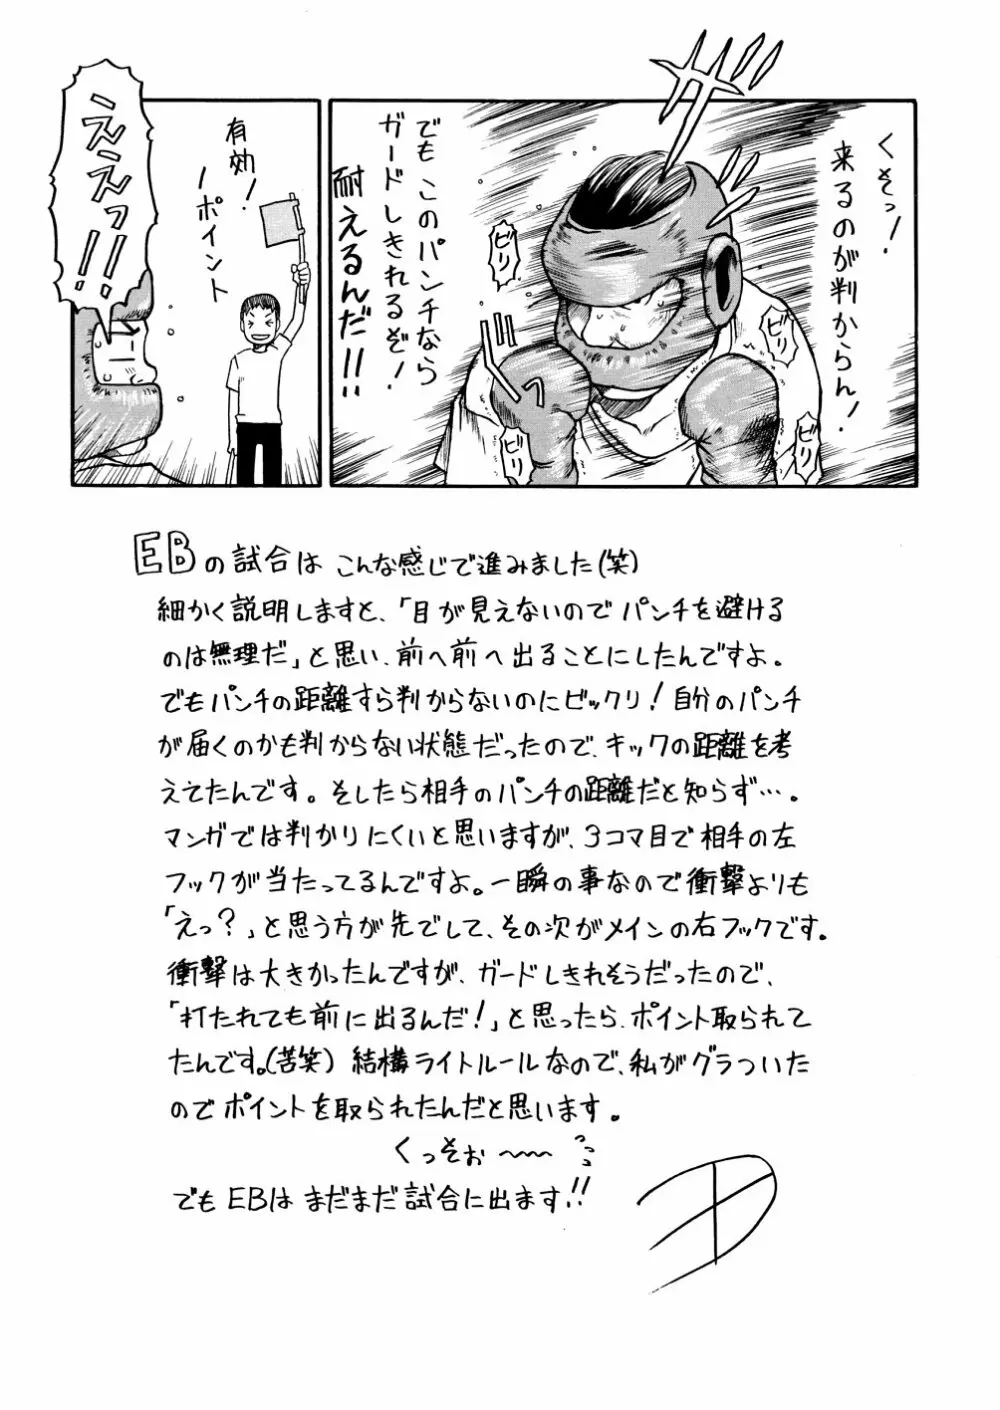 くそっ!
来るのが判からん!
ガガガッ
ビリ
ビリ
ビリ
ビリ
でもこのパンチなら
ガードしきれるぞ!
耐えるんだ!!
有効!
1ポイント
ええエッ!!
EBの試合は こんな感じで進みました(笑)
細かく説明しますと、「目が見えないのでパンチを避ける
のは無理だ」と思い、前へ前へ出ることにしたんですよ。
でもパンチの距離すら判からないのにビックリ!自分のパンチ
が届くのかも判からない状態だったので、キックの距離を考
えてたんです。そしたら相手のパンチの距離だと知らず…。
マンガでは判かりにくいと思いますが、3コマ目で相手の左
フックが当たってるんですよ。一瞬の事なので衝撃よりも
「えっ?」と思う方が先でして、その次がメインの右フックです。
衝撃は大きかったんですが、ガードしきれそうだったので、
「打たれても前に出るんだ!」と思ったら、ポイント取られて
たんです。(苦笑) 結構ライトルールなので、私がグラついた
のでポイントを取られたんだと思います。
くっそぉ〜〜〜
でもEBは まだまだ試合に出ます!!